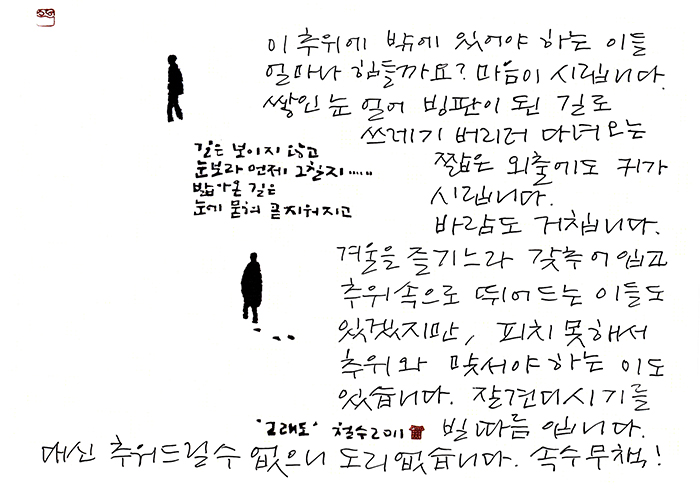 이 추위에 밖에 있어야 하는 이들
얼마나 힘들까요? 마음이 시립니다.
쌓인 눈 얼어 빙판이 된 길로
쓰레기 버리러 다녀오는
짧은 외출에도 귀가
시립니다.
바람도 거칩니다.
겨울을 즐기느라 갖추어 입고
추위 속으로 뛰어드는 이들도
있겠지만, 피치 못해서
추위와 맞서야 하는 이도
있습니다. 잘 견디시기를
빌 따름입니다.
대신 추워드릴 수 없으니 도리 없습니다. 속수무책!
길은 보이지 않고
눈보라 언제 그칠지......
밟아온 길은
눈에 묻혀 곧 지워지고
'그래도' 철수 2011